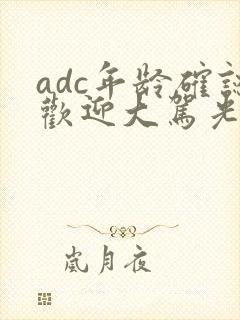 adc年龄確認
歡迎大駕光
嵐月夜